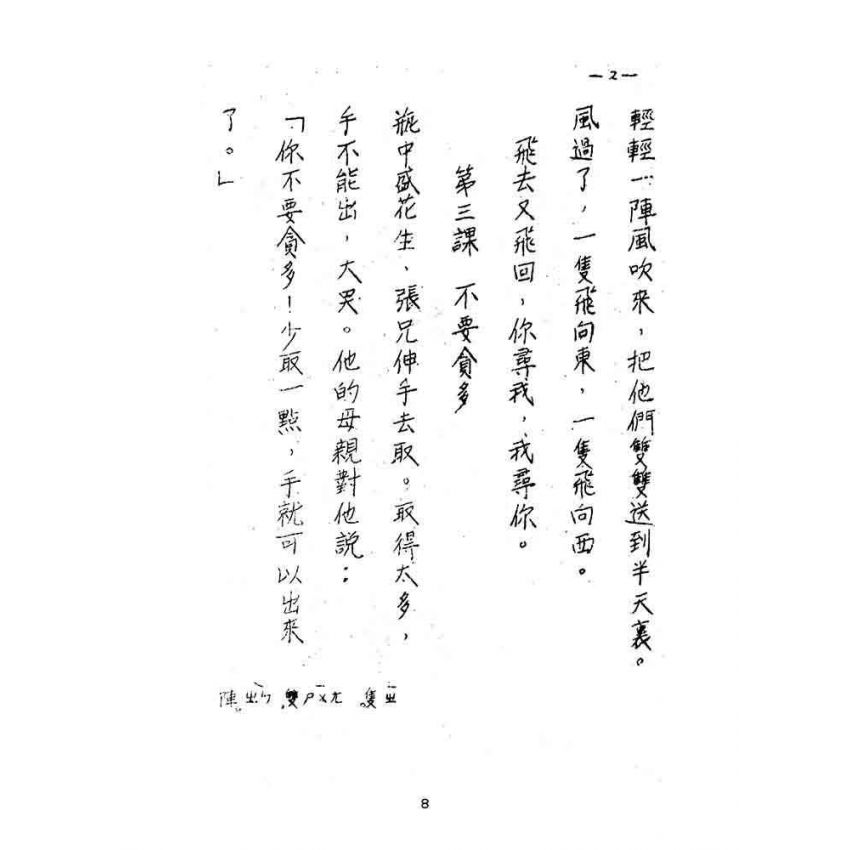 —2—
輕輕一陣風吹來，把他們雙雙送到半天裏。
風過了，一隻飛向東，一隻飛向西。
飛去又飛回，你尋我，我尋你。
第三課　不要貪多
瓶中盛花生、張兄伸手去取。取得太多，
手不能出，大哭。他的母親對他說：
「你不要貪多！少取一點，手就可以出來
了。」
陳 ㄓㄣ 雙ㄕㄨㄤ 隻ㄓ
8